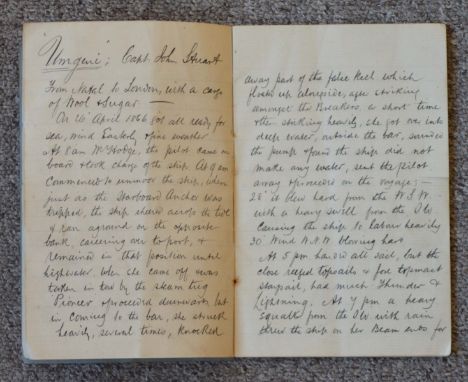 "Umgeni"; Capt. John Stuart
From Natal to London, with a cargo
of Wool & Sugar —
On 26 April 1866 got all ready for
sea, wind Easterly, & fine weather
At 8 am Mr Hodge, the pilot came on
board & took charge of the ship. At 9 am
commenced to unmoor the ship, when
just as the Starboard Anchor was
tripped, the ship sheered across the tide
& ran aground on the opposite
bank, careering over to port, &
remained in that position until
highwater. When she came off & was
taken in tow by the steam tug
Pioneer & proceeded downwards but
in coming to the bar, she struck
heavily, several times, knocked
away part of the false Keel which
floated up alongside, after striking
amongst the Breakers, a short time
& the striking heavily, she got on into
deep water, outside the bar, sounded
the pump & found the ship did not
make any water, sent the pilot
away & proceeded on the voyage; —
28th it blew hard from the W.S.W
with a heavy swell from the SW
causing the ship to labour heavily
30 Wind W.N.W blowing hard
At 5 pm handed all sail, but the
close reefed topsails & fore topmast
staysail, had much Thunder &
Lightning. At 7 pm a heavy
squall from the SW with rain
threw the ship on her Beam ends for